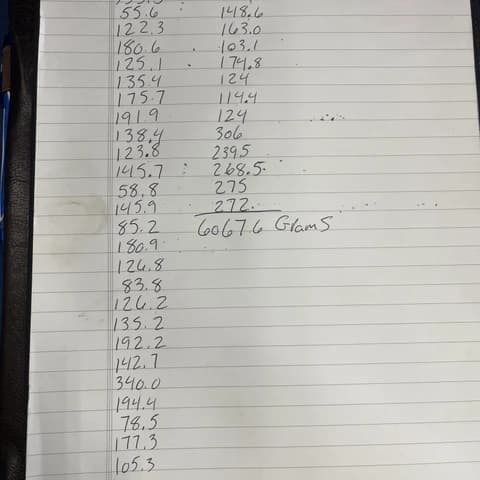 55.6 148.6
122.3 163.0
180.6 103.1
125.1 174.8
135.4 124
175.7 114.4
191.9 124
138.4 306
123.8 239.5
145.7 268.5
58.8 275
145.9 272.
85.2 6067.6 Grams
180.9
126.8
83.8
126.2
135.2
192.2
142.7
340.0
194.4
78.5
177.3
105.3